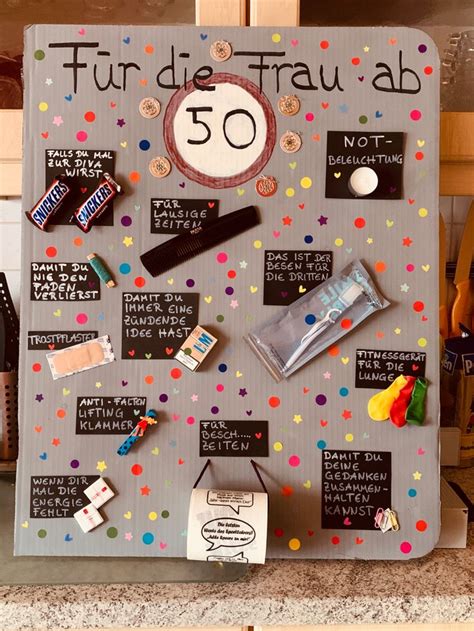 Für die Frau ab
50
FALLS DU MAL
ZUR DIVA
WIRST
SNICKERS
SNICKERS
FÜR
LAUSIGE
ZEITEN
NOT-
BELEUCHTUNG
DAMIT DU
NIE DEN
FADEN
VERLIERST
DAMIT DU
IMMER EINE
ZÜNDENDE
IDEE HAST
DAS IST DER
BESEN FÜR
DIE DRITTEN
TROSTPFLASTER
L&M
FITNESSGERÄT
FÜR DIE
LUNGE
ANTI-FALTEN
LIFTING
KLAMMER
FÜR
BESCH....
ZEITEN
WENN DIR
MAL DIE
ENERGIE
FEHLT
DAMIT DU
DEINE
GEDANKEN
ZUSAMMEN-
HALTEN
KANNST
Die letzten
Worte des Sportlehrers:
"Alle Speere
zu mir!"